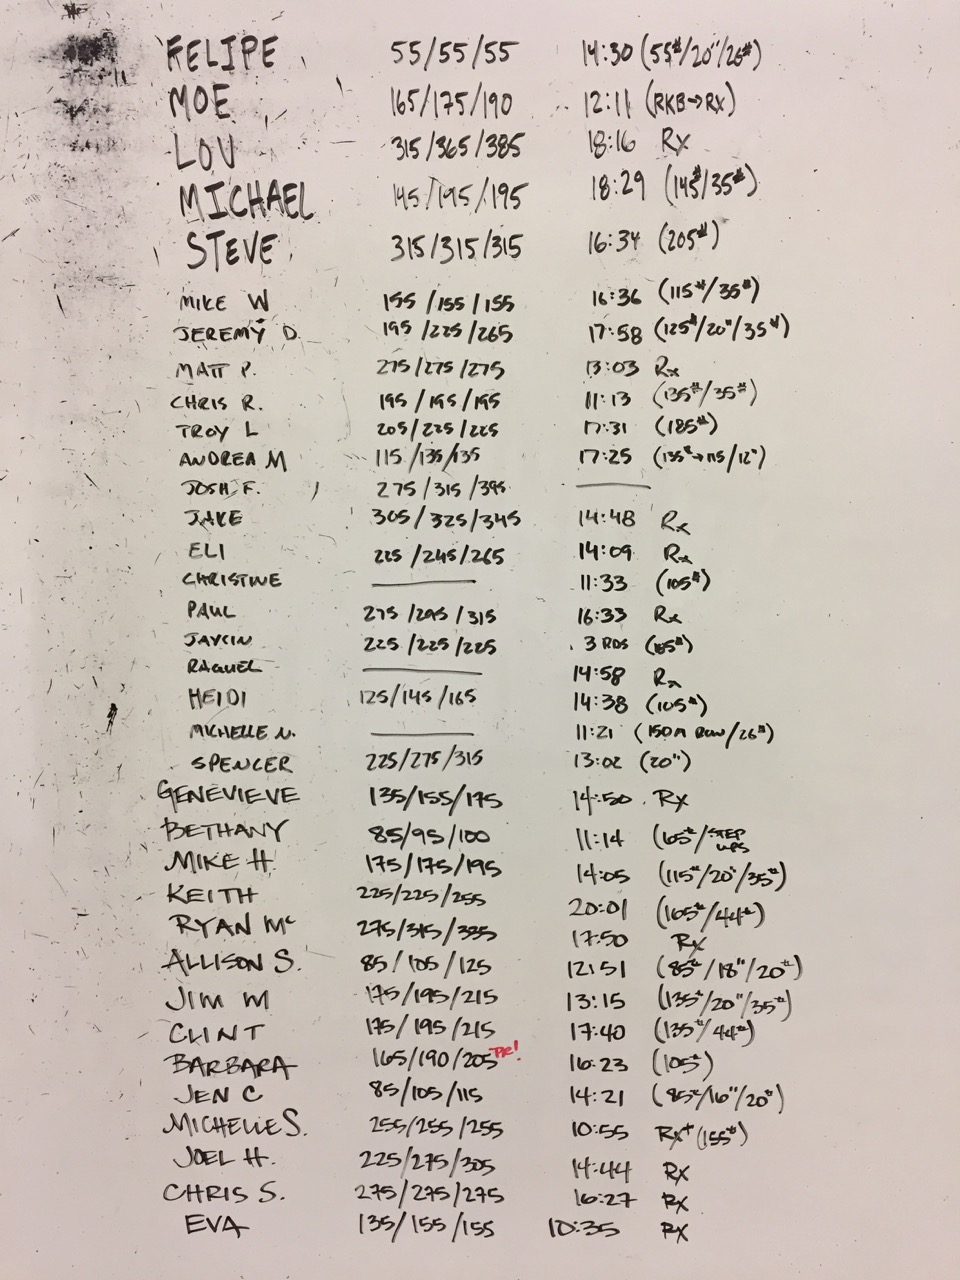 FELIPE 55/55/55 14:30 (55#/20"/26#)
MOE 165/175/190 12:11 (RKB→RX)
LOU 315/365/385 18:16 RX
MICHAEL 145/195/195 18:29 (145#/35#)
STEVE 315/315/315 16:34 (205#)
MIKE W 155/155/155 16:36 (115#/35#)
JEREMY D. 195/225/265 17:58 (125#/20"/35#)
MATT P. 275/275/275 13:03 Rx
CHRIS R. 195/195/195 11:13 (135#/35#)
TROY L 205/225/225 17:31 (185#)
ANDREA M 115/135/135 17:25 (135#→115/12")
JOSH F. 275/315/395 ——
JAKE 305/325/345 14:48 Rx
ELI 225/245/265 14:09 Rx
CHRISTINE —— 11:33 (105#)
PAUL 275/295/315 16:33 Rx
JAYCIN 225/225/225 3 RDS (185#)
RAQUEL —— 14:58 Rx
HEIDI 125/145/165 14:38 (105#)
MICHELLE N. —— 11:21 (150M ROW/26#)
SPENCER 225/275/315 13:02 (20")
GENEVIEVE 135/155/175 14:50 RX
BETHANY 85/95/100 11:14 (65#/STEP UPS
MIKE H. 175/175/195 14:05 (115#/20"/35#)
KEITH 225/225/255 20:01 (165#/44#)
RYAN Mc 275/315/335 17:50 RX
ALLISON S. 85/105/125 12:51 (85#/18"/20#)
JIM M 175/195/215 13:15 (135#/20"/35#)
CLINT 175/195/215 17:40 (135#/44#)
BARBARA 165/190/205 PR! 16:23 (105#)
JEN C 85/105/115 14:21 (85#/16"/20#)
MICHELLE S. 255/255/255 10:55 RX+ (155#)
JOEL H. 225/275/305 14:44 RX
CHRIS S. 275/275/275 16:27 RX
EVA 135/155/155 10:35 RX